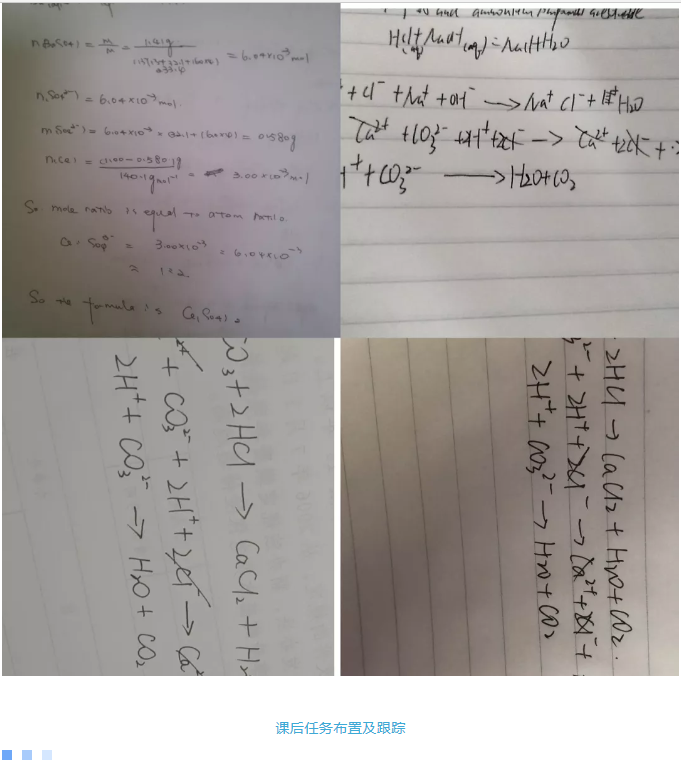 n(BaSO4) = m/M = 1.41g / (137.3+32.1+16.0×4) = 6.04×10⁻³mol
n(SO4²⁻) = 6.04×10⁻³mol
m(SO4²⁻) = 6.04×10⁻³ × (32.1+16.0×4) = 0.580g
n(Ce) = (1.00-0.580)g / 140.1gmol⁻¹ = 3.00×10⁻³mol
So mole ratio is equal to atom ratio.
Ce : SO4²⁻ = 3.00×10⁻³ : 6.04×10⁻³
= 1:2.
So the formula is Ce(SO4)2
HCl(aq)+NaOH(aq)=NaCl+H2O
+ Cl⁻ + Na⁺ + OH⁻ → Na⁺ Cl⁻ + H2O
Ca²⁺ + CO3²⁻ + 2H⁺ + 2Cl⁻ → Ca²⁺ + 2Cl⁻ +
⁺ + CO3²⁻ → H2O + CO2
CO3 + 2HCl → CaCl2 + H2
+ CO3²⁻ + 2H⁺ + 2Cl⁻ → Ca²
2H⁺ + CO3²⁻ → H2O + CO2
2HCl → CaCl2 + H2O + CO2.
²⁻ + 2H⁺ + 2Cl⁻ → Ca²⁺ + 2Cl⁻ +
2H⁺ + CO3²⁻ → H2O + CO2
课后任务布置及跟踪